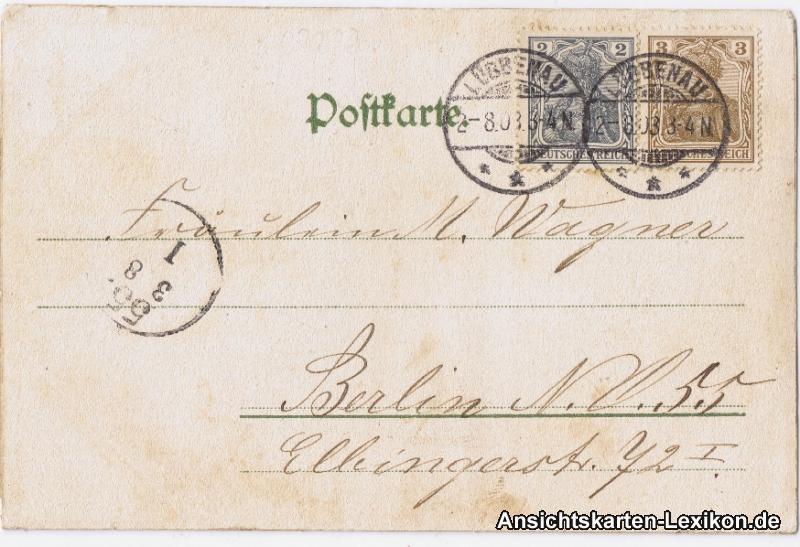 2 2 3 3
DEUTSCHES REICH
LÜBBENAU
2-8.03.3-4 N.
LÜBBENAU
2-8.03.3-4 N.
Postkarte.
Fräulein M. Wagner
I
3
8
55.
Berlin N. O. 55
Elbingerstr. 72 I
Ansichtskarten-Lexikon.de